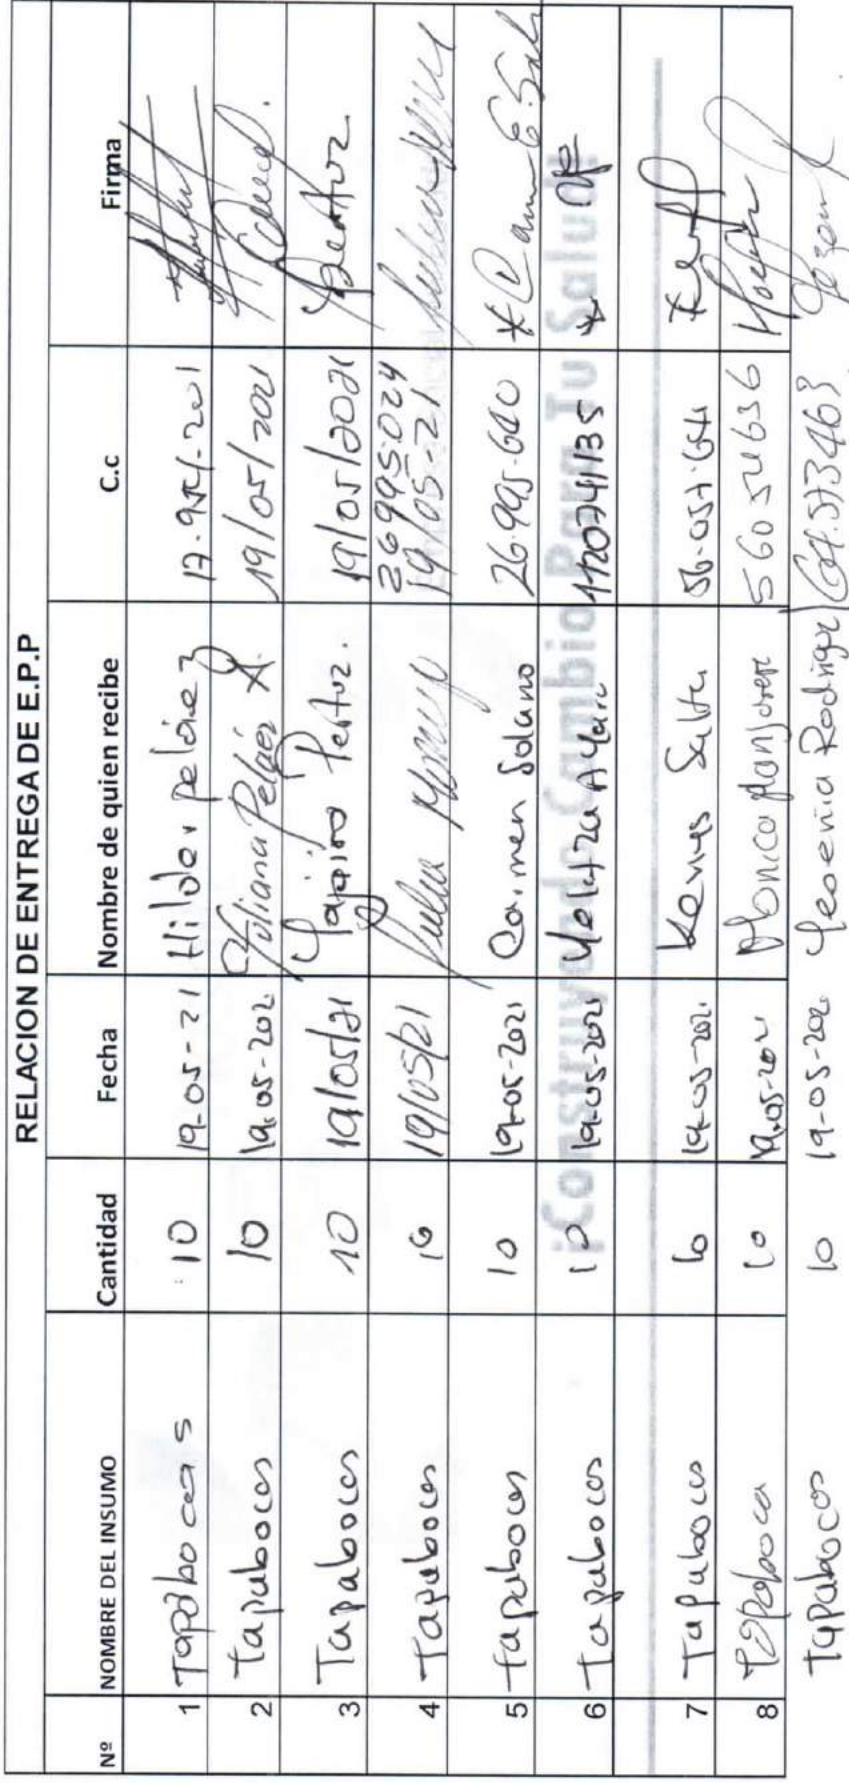 RELACION DE ENTREGA DE E.P.P
Nº NOMBRE DEL INSUMO Cantidad Fecha Nombre de quien recibe C.c Firma
1 Tapabocas 10 19-05-21 Hilder peláez
2 Tapabocas 10 19-05-202 Yuliana Peláez A. 19/05/2021
3 Tapabocas 10 19/05/21 Pertuz. 19/05/2021 Pertuz
4 Tapabocas 10 19/05/21 26995024 19/05-21
5 Tapabocas 10 19-05-2021 Carmen Solano 26.995.640 Carmen E. Sol
6 Tapabocas 10 19-05-2021 1120741135
7 Tapabocas 10 19-05-202 56.057.641
8 Tapaboca 10 19-05-2021 Monica Manjarrez 56054636
Tapabocas 10 19-05-202 Yesenia Rodriguez
¡Construyendo Cambio Para Tu Salud!